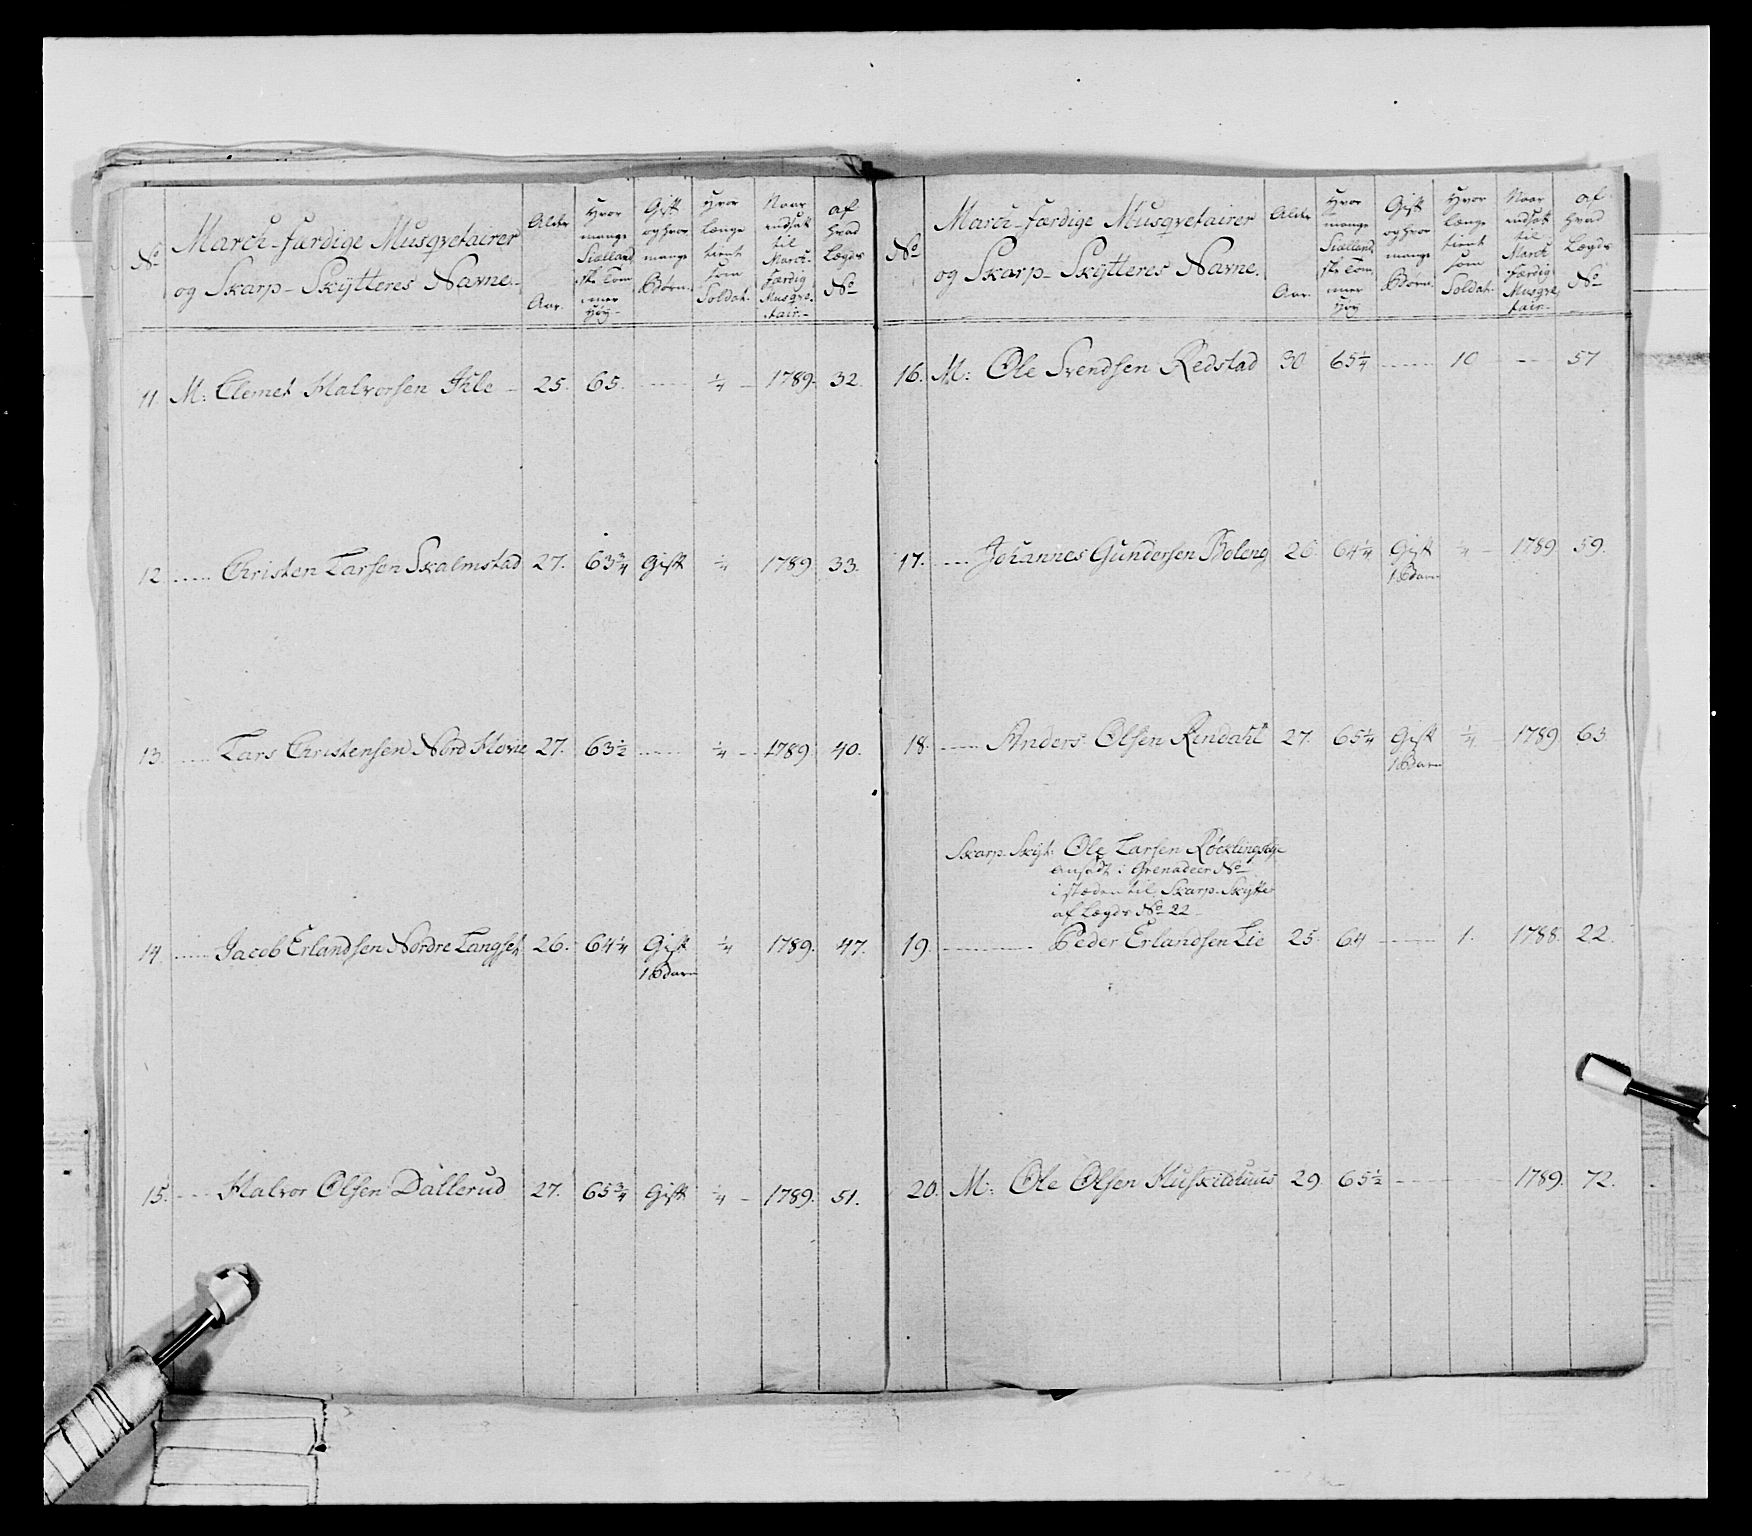 No
March-færdige Musqvetairer
og Skarp-Skÿtteres Navne.
Alder
Aar.
Hvor
mange
Siælland
ske Tom
mer
Höy
Gift
og hvor
mange
Börn.
Hvor
længe
tient
som
Soldat.
Naar
udsatt
til
March
færdig
Musqve
tair.
af
hvad
Lægds
No
11. M: Clemet Halvorsen Ihle 25. 65. 1/4 1789. 32.
12. Christen Larsen Skalmstad 27. 63 3/4 Gift 1/4 1789 33.
13. Lars Christensen Nord Hovie 27. 63 1/2 1/4 1789 40.
14. Jacob Erlandsen Nordre Langset 26. 64 1/4 Gift 1/4 1789. 47.
1 Barn
15. Halvor Olsen Dallerud 27. 65 3/4 Gift 1/4 1789. 51.
No
March-færdige Musqvetairer
og Skarp-Skÿtteres Navne.
Alder
Aar.
Hvor
mange
Siælland
ske Tom
mer
Höy
Gift
og hvor
mange
Börn.
Hvor
længe
tient
som
Soldat.
Naar
udsatt
til
March
færdig
Musqve
tair.
af
hvad
Lægds
No
16. M: Ole Svendsen Redstad 30 65 1/4 10 57
17. Johannes Gundersen Boleng 26 64 1/4 Gift 1/4 1789 59.
1 Barn
18. Anders Olsen Rindahl 27 65 1/4 Gift 1/4 1789 63
1 Barn
Skarp Skÿt: Ole Larsen
ansadt i Grenadeer No
i stæden til Skarp Skÿtter
af Lægds No 22
19. Peder Erlandsen Lie 25 64 1. 1788. 22
20. M: Ole Olsen 29 65 1/2 1789. 72.